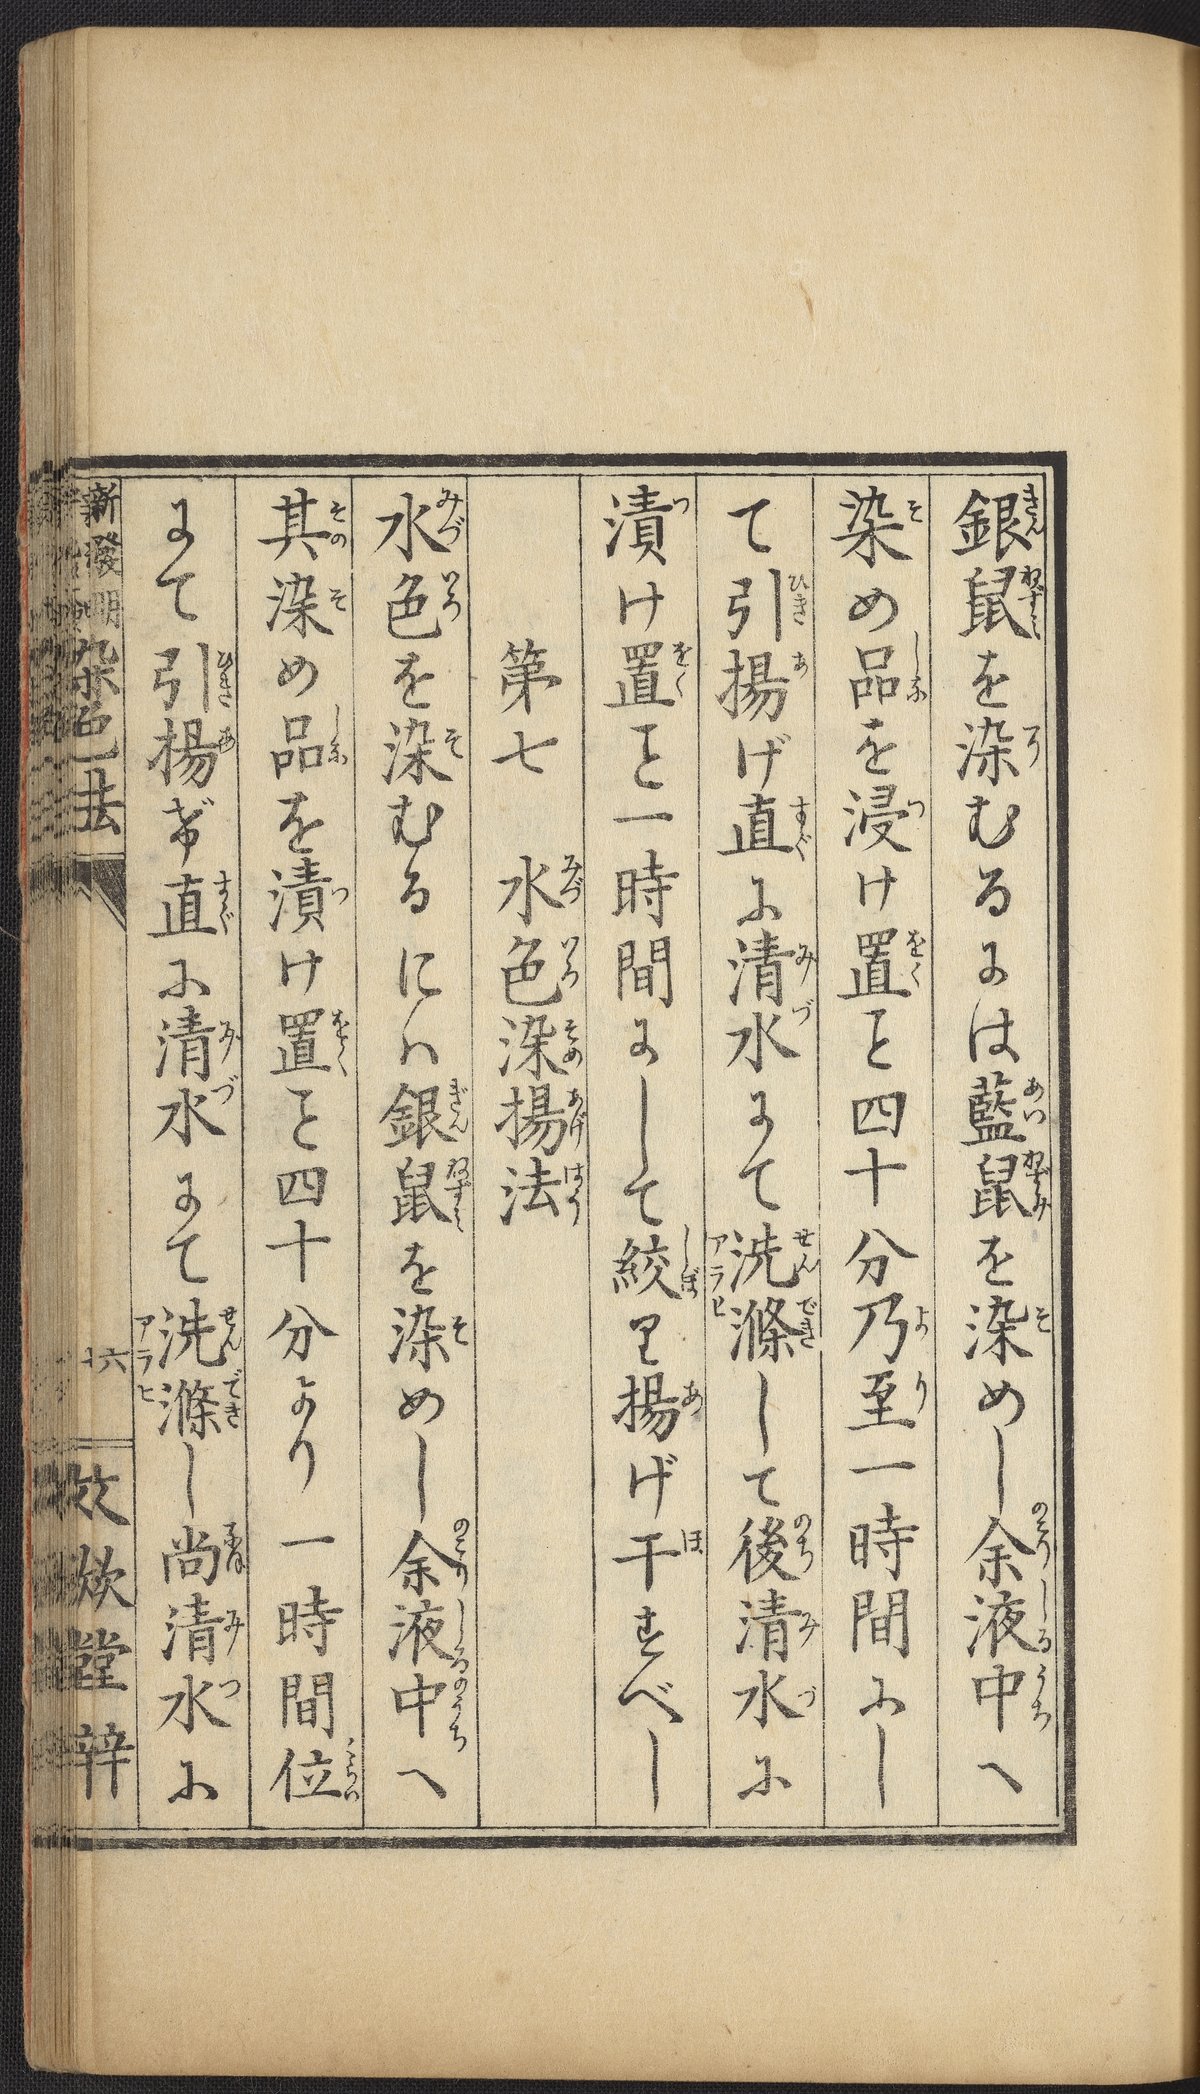 銀鼠を染むるには藍鼠を染めし余液中へ
染め品を浸け置こと四十分乃至一時間にし
て引揚げ直に清水にて洗滌して後清水に
漬け置こと一時間にして絞り揚げ干すべし
第七　水色染揚法
水色を染むるにハ銀鼠を染めし余液中へ
其染め品を漬け置こと四十分より一時間位
にて引揚げ直に清水にて洗滌し尚清水に
新發明染色法
十六